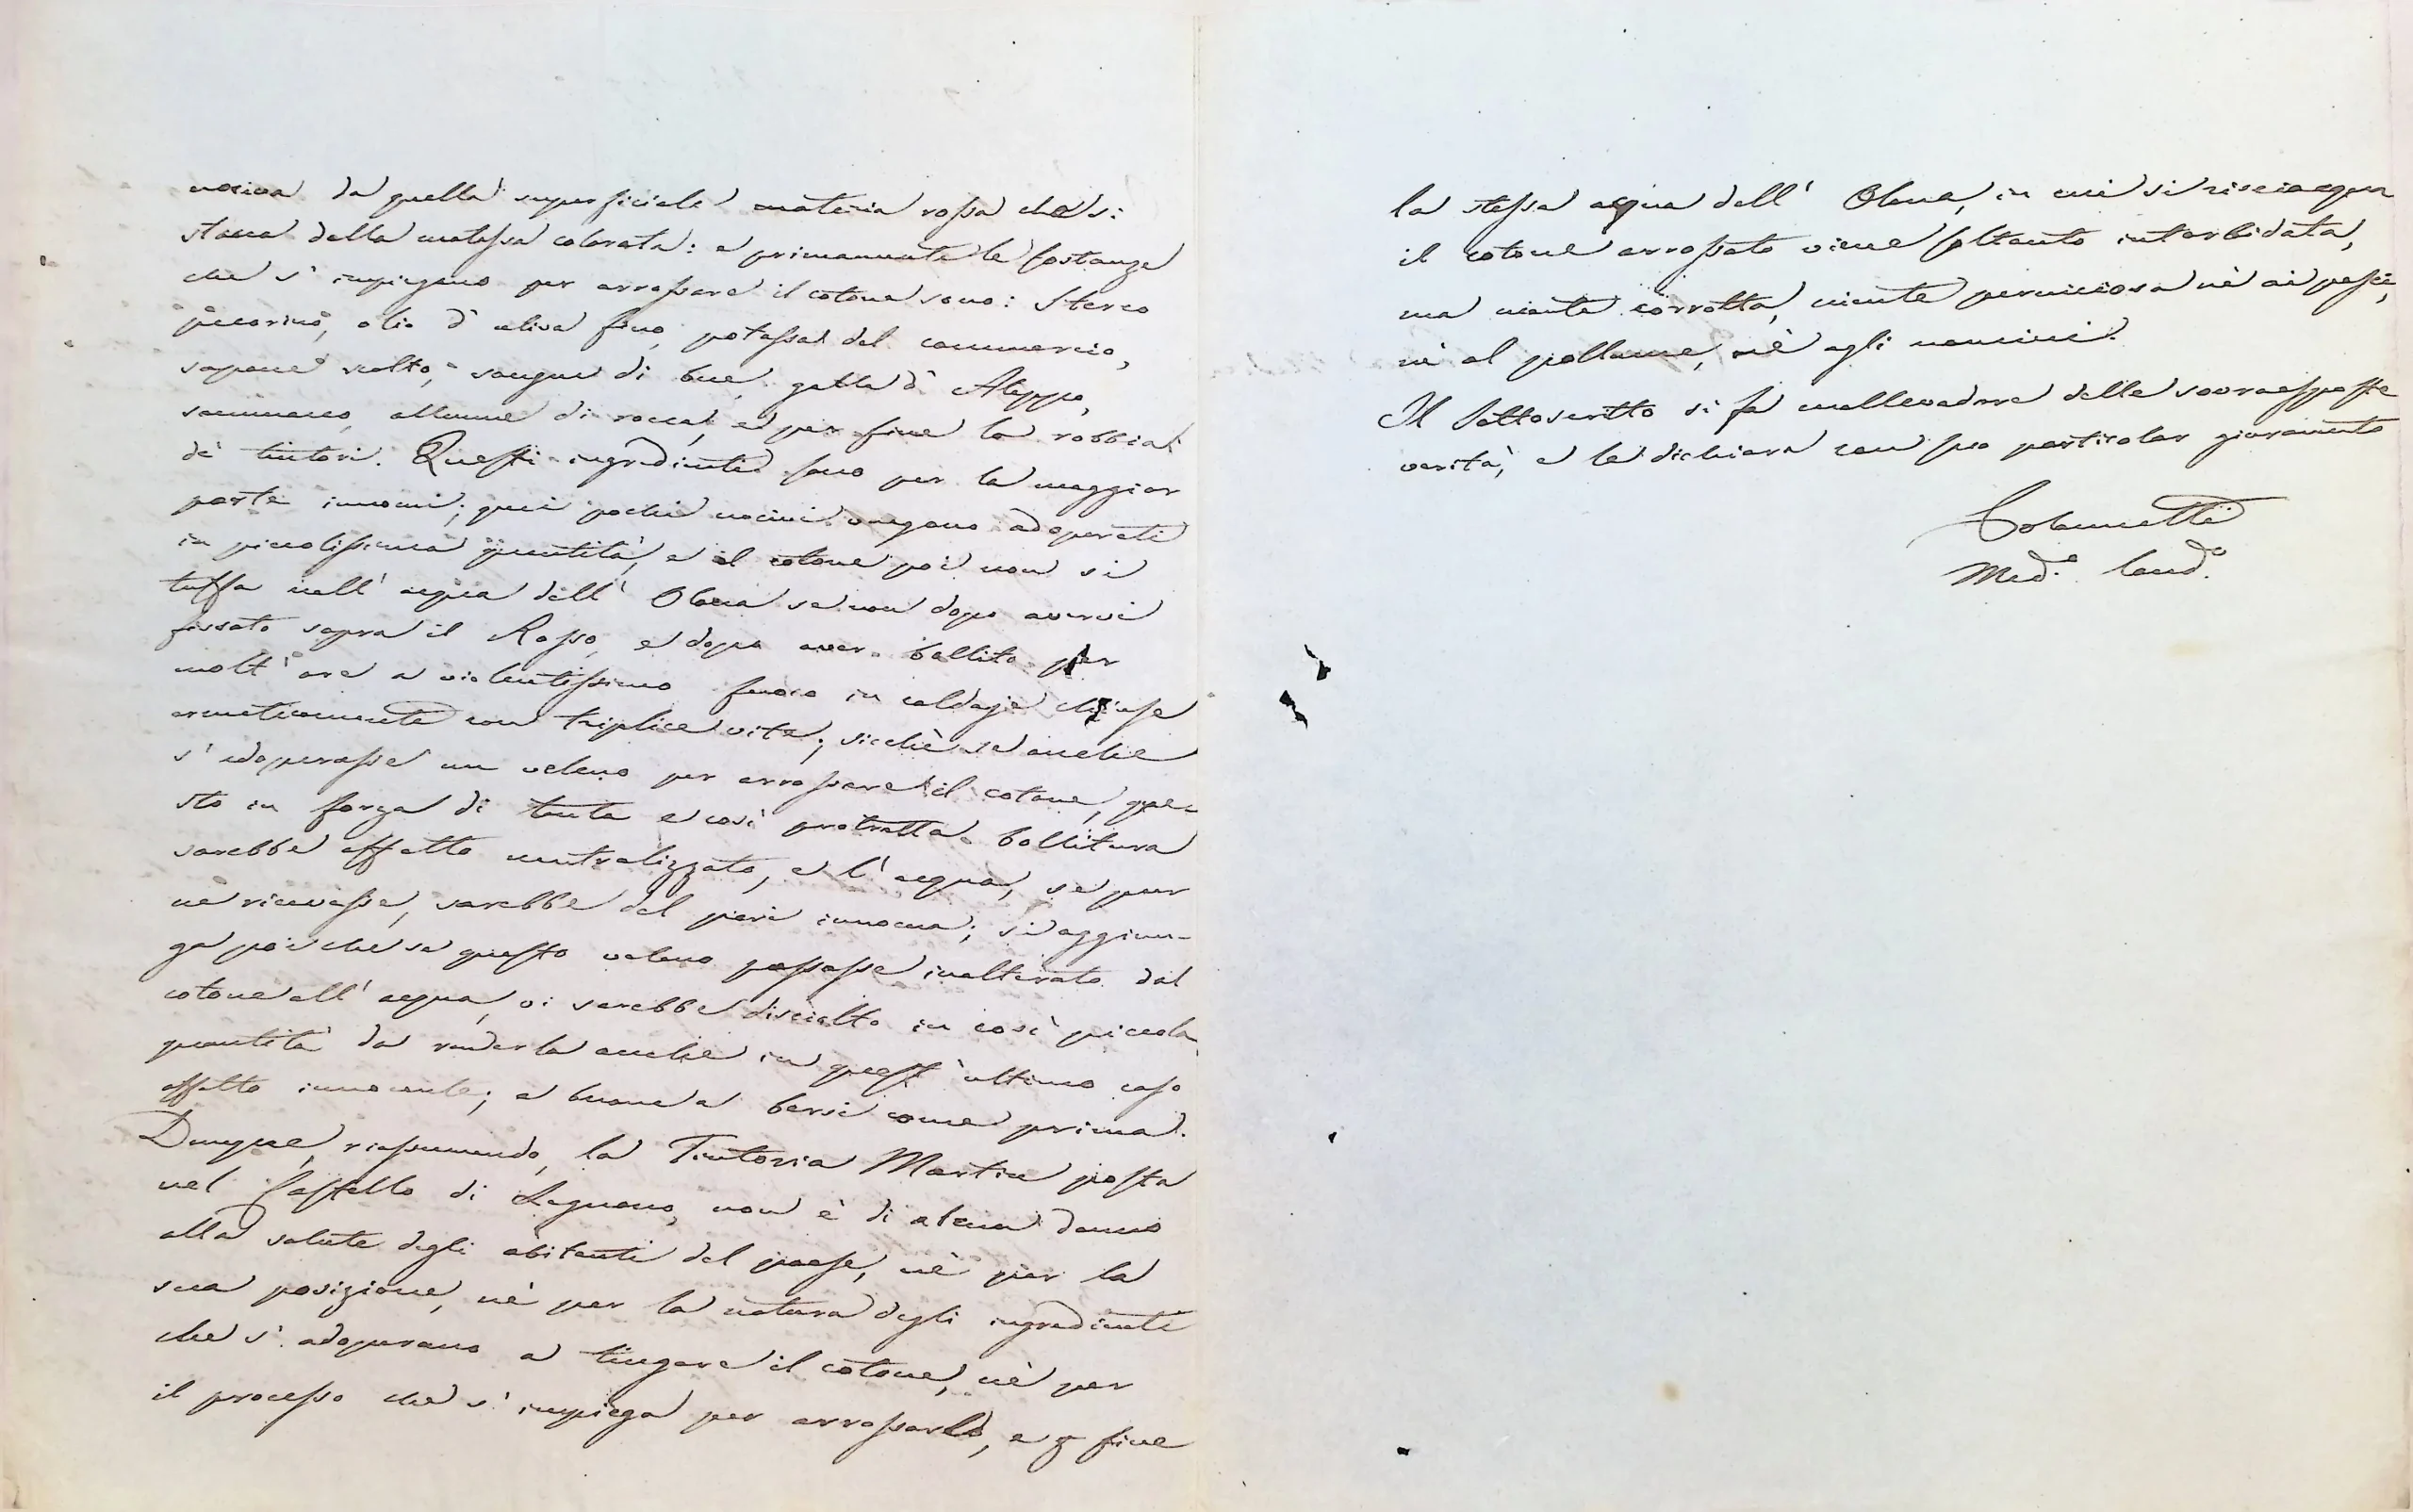 nociva da quella superficiale materia rossa che si
stacca dalla matassa colorata: e primamente le sostanze
che s' impiegano per arrossare il cotone sono: sterco
pecorino, olio d' oliva fino, potassa del commercio,
sapone sciolto, sangue di bue, galla d' Aleppo,
sommacco, allume di rocca, e per fine la robbia
de' tintori. Questi ingredienti sono per la maggior
parte innocui; quei pochi nocivi vengono adoperati
in piccolissima quantità, e il cotone poi non si
tuffa nell' acqua dell' Olona se non dopo avervi
fissato sopra il Rosso, e dopo aver bollito per
molt' ore a violentissimo fuoco in caldaje chiuse
ermeticamente con triplice vite; sicchè se anche
s' adoperasse un veleno per arrossare il cotone, que-
sto in forza di tanta e così protratta bollitura
sarebbe affatto neutralizzato, e l' acqua, se pur
ne ricevesse, sarebbe del pari innocua; si aggiun-
ga poi che se questo veleno passasse inalterato dal
cotone all' acqua, vi sarebbe disciolto in così piccola
quantità da renderla anche in quest' ultimo caso
affatto innocente; e buona a bersi come prima.
Dunque, riassumendo, la Tintoria Martin posta
nel Castello di Legnano, non è di alcun danno
alla salute degli abitanti del paese, nè per la
sua posizione, nè per la natura degli ingredienti
che s' adoperano a tingere il cotone, nè per
il processo che s' impiega per arrossarlo, e fine
la stessa acqua dell' Olona, in cui si risciacqua
il cotone arrossato viene soltanto intorbidata,
ma niente corrotta, niente perniciosa nè ai pesci,
nè al pollame, nè agli uomini.
Il Sottoscritto si fa mallevadore delle sovraesposte
verità, e le dichiara con suo particolar giuramento
Med.o Cond.o